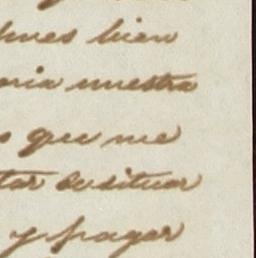 pues bien
oria nuestra
s que me
tar de situar
y pagar